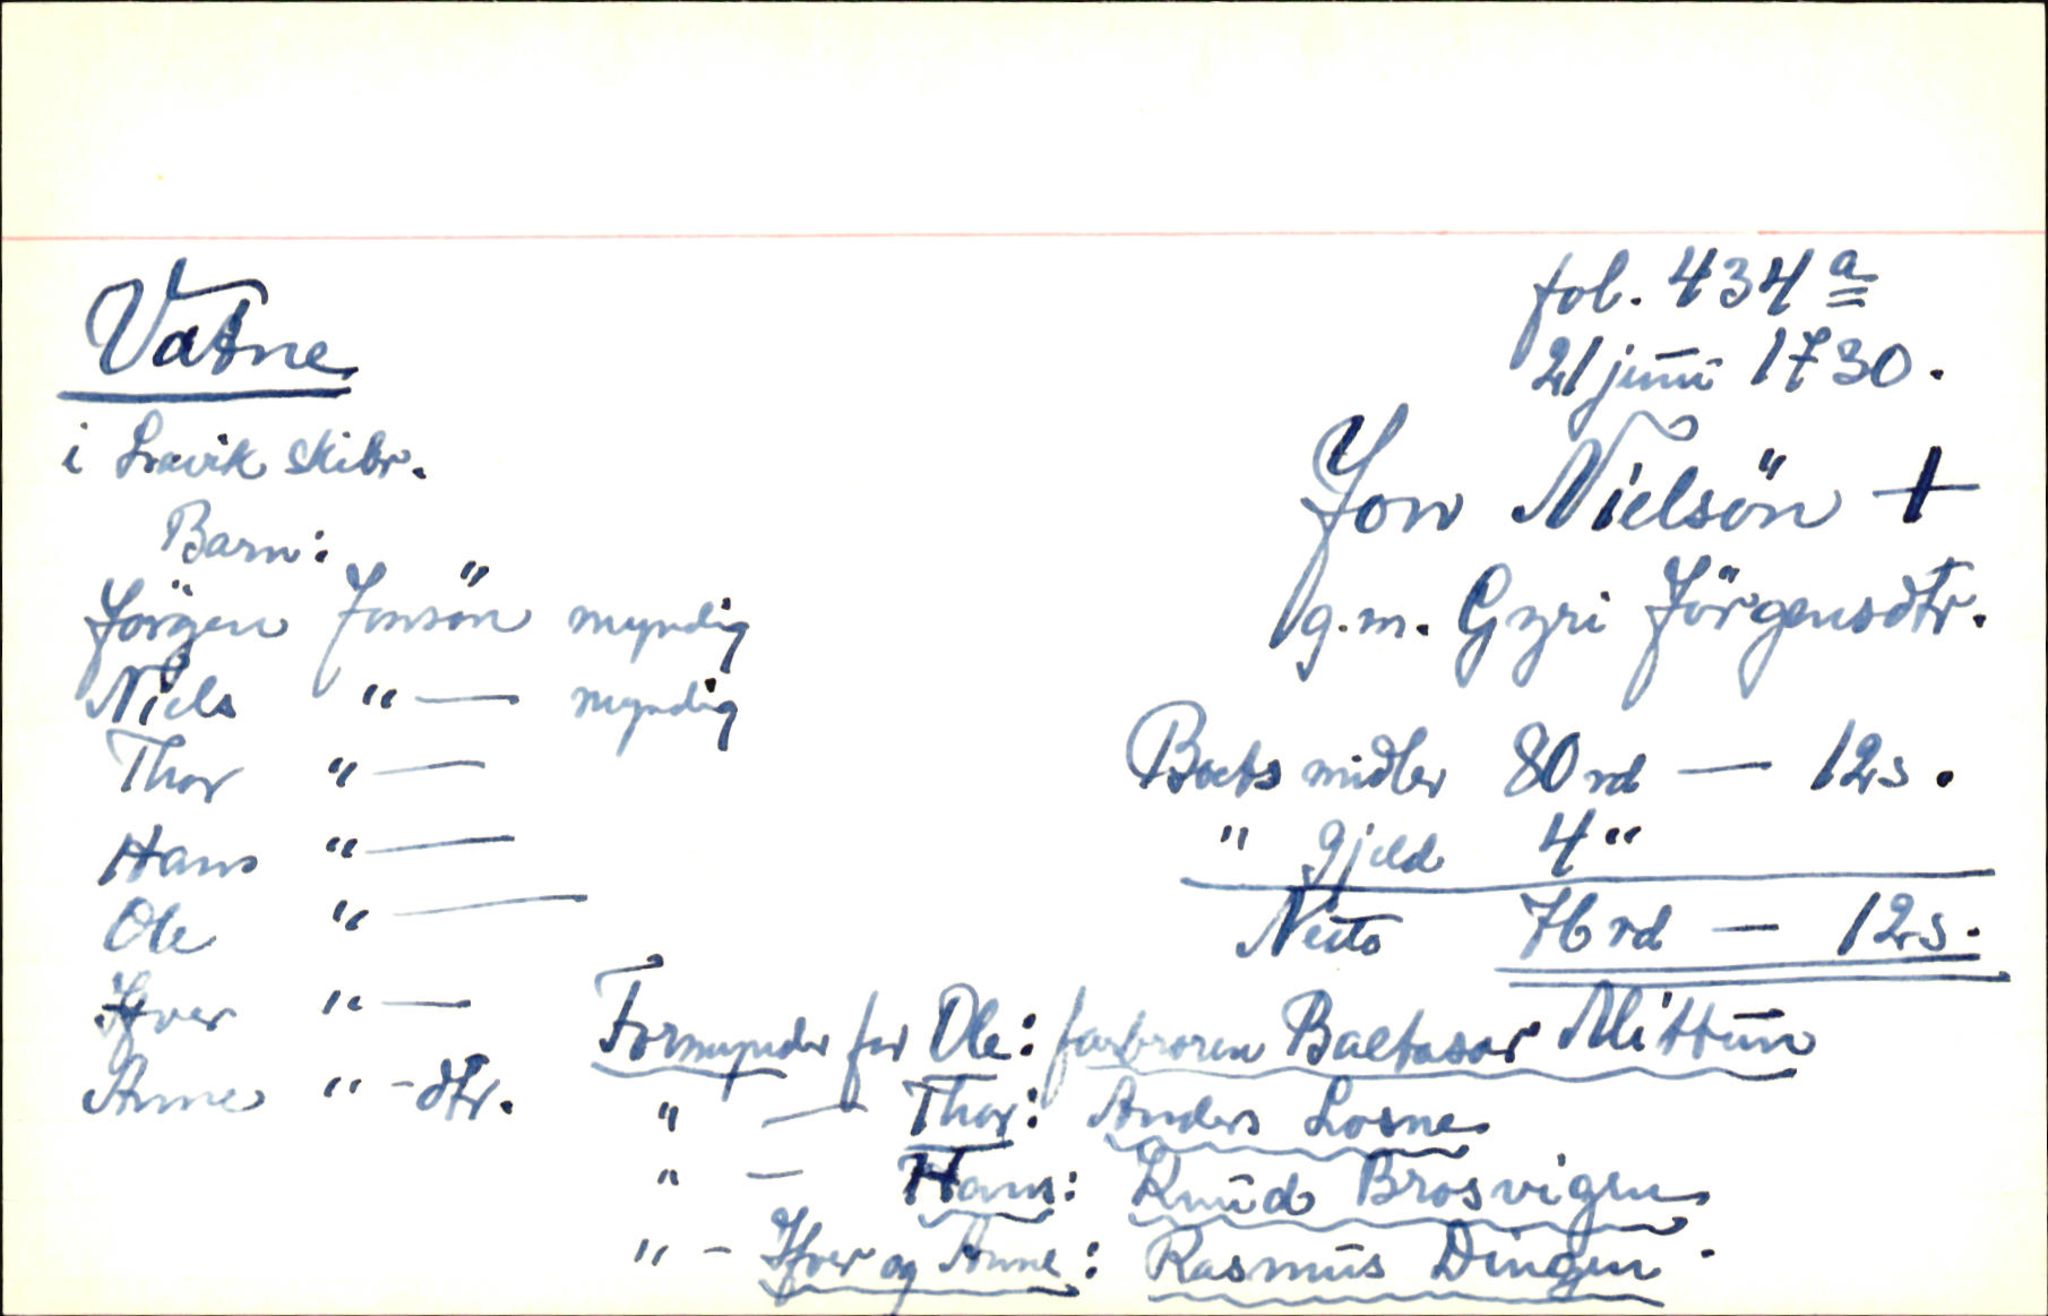 fol. 434 a
21 juni 1730.
Vatne
i Lavik skibr.
Jon Nielsön +
g.m. Gyri Jörgensdtr.
Barn:
Jörgen Jonsön myndig
Niels " — myndig
Thor " —
Hans " —
Ole " —
Ifver " —
Anne " - dtr.
Boets midler 80 rd — 12 s.
" gjeld 4 "
Netto 76 rd — 12 s.
Formynder for Ole: farbroren Baltasar Mittun
" — Thor: Anders Losne
" — Hans: Knud Brosvigen
" - Ifver og Anne: Rasmus Dingen.